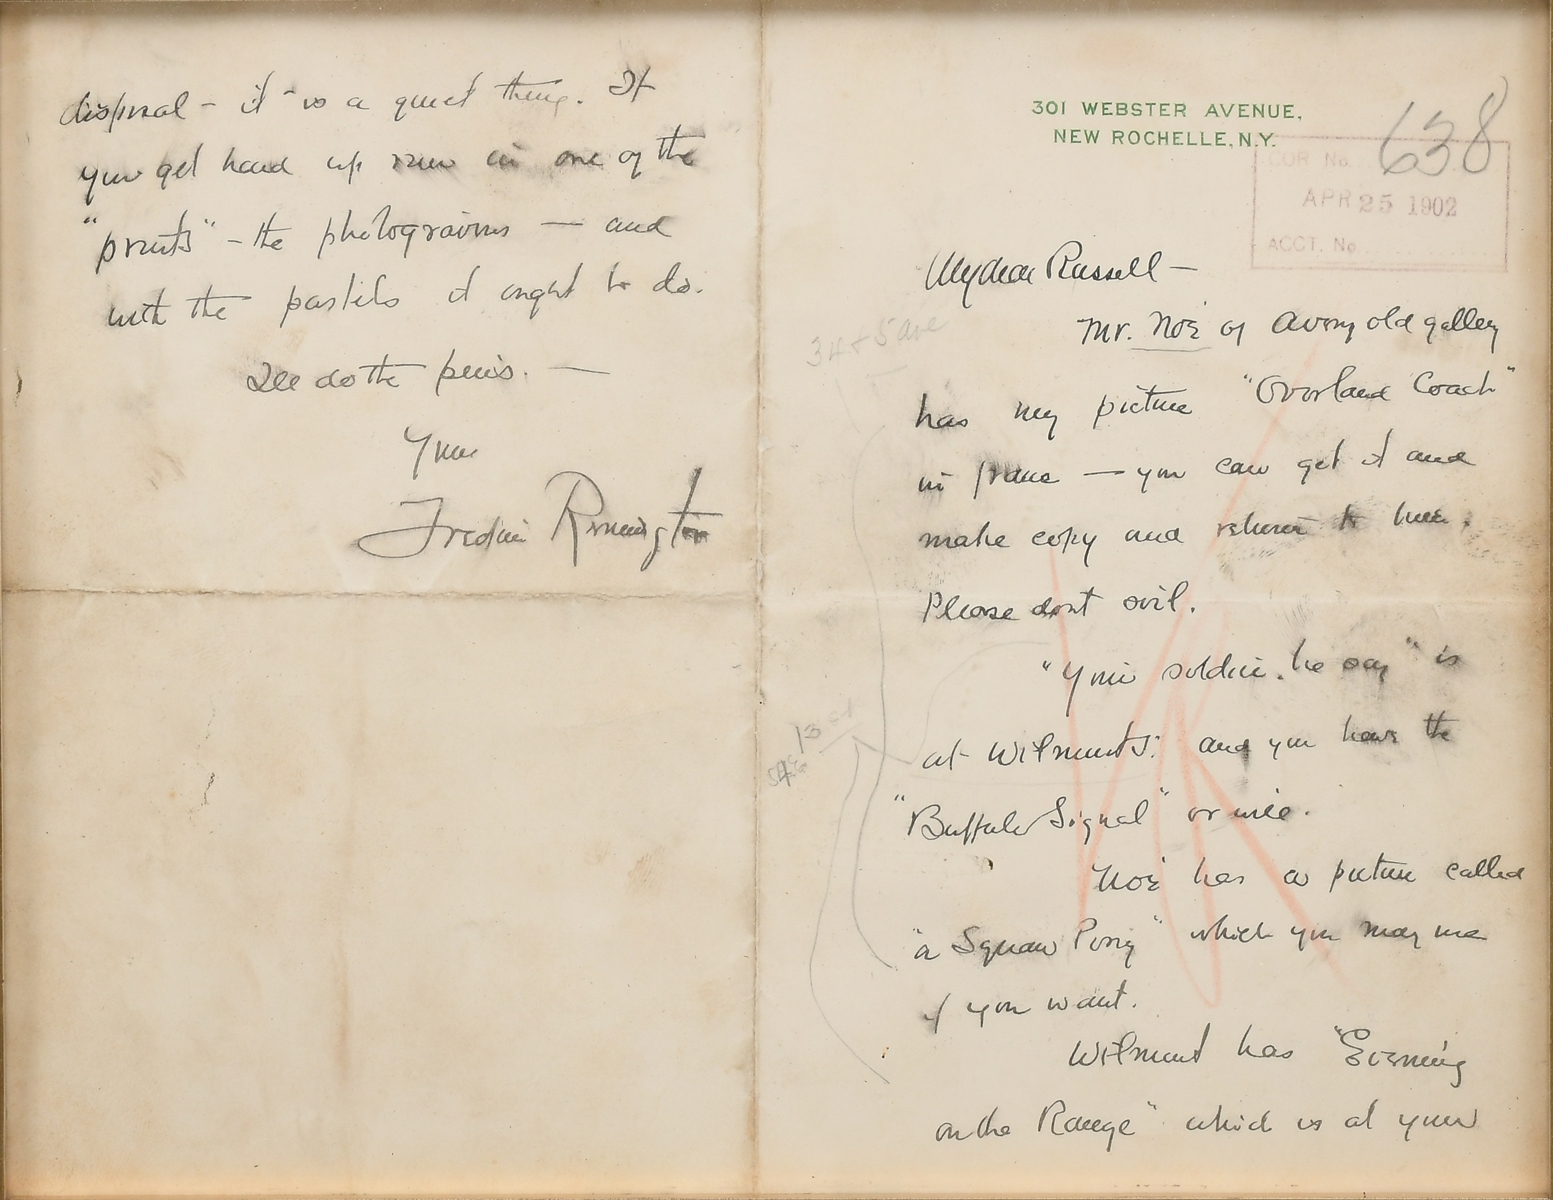 301 WEBSTER AVENUE,
NEW ROCHELLE, N.Y.
638
COR No.
APR 25 1902
ACCT. No.
My dear Russell —
Mr. Noé of Avery old gallery
has my picture "Overland Coach"
in frame — you can get it and
make copy and return to him.
Please dont oil.
"Your soldier, he say" is
at Wilmunts: and you have the
"Buffalo Signal" or will.
Noé has a picture called
"a Squaw Pony" which you may use
if you want.
Wilmunt has "Evening
on the Range" which is at your
disposal — it is a quiet thing. If
you get hard up run in one of the
"prints" — the photogravures — and
with the pastels it ought to do.
I'll do the pens. —
Yours
Frederic Remington
34 & 5 ave
13 st